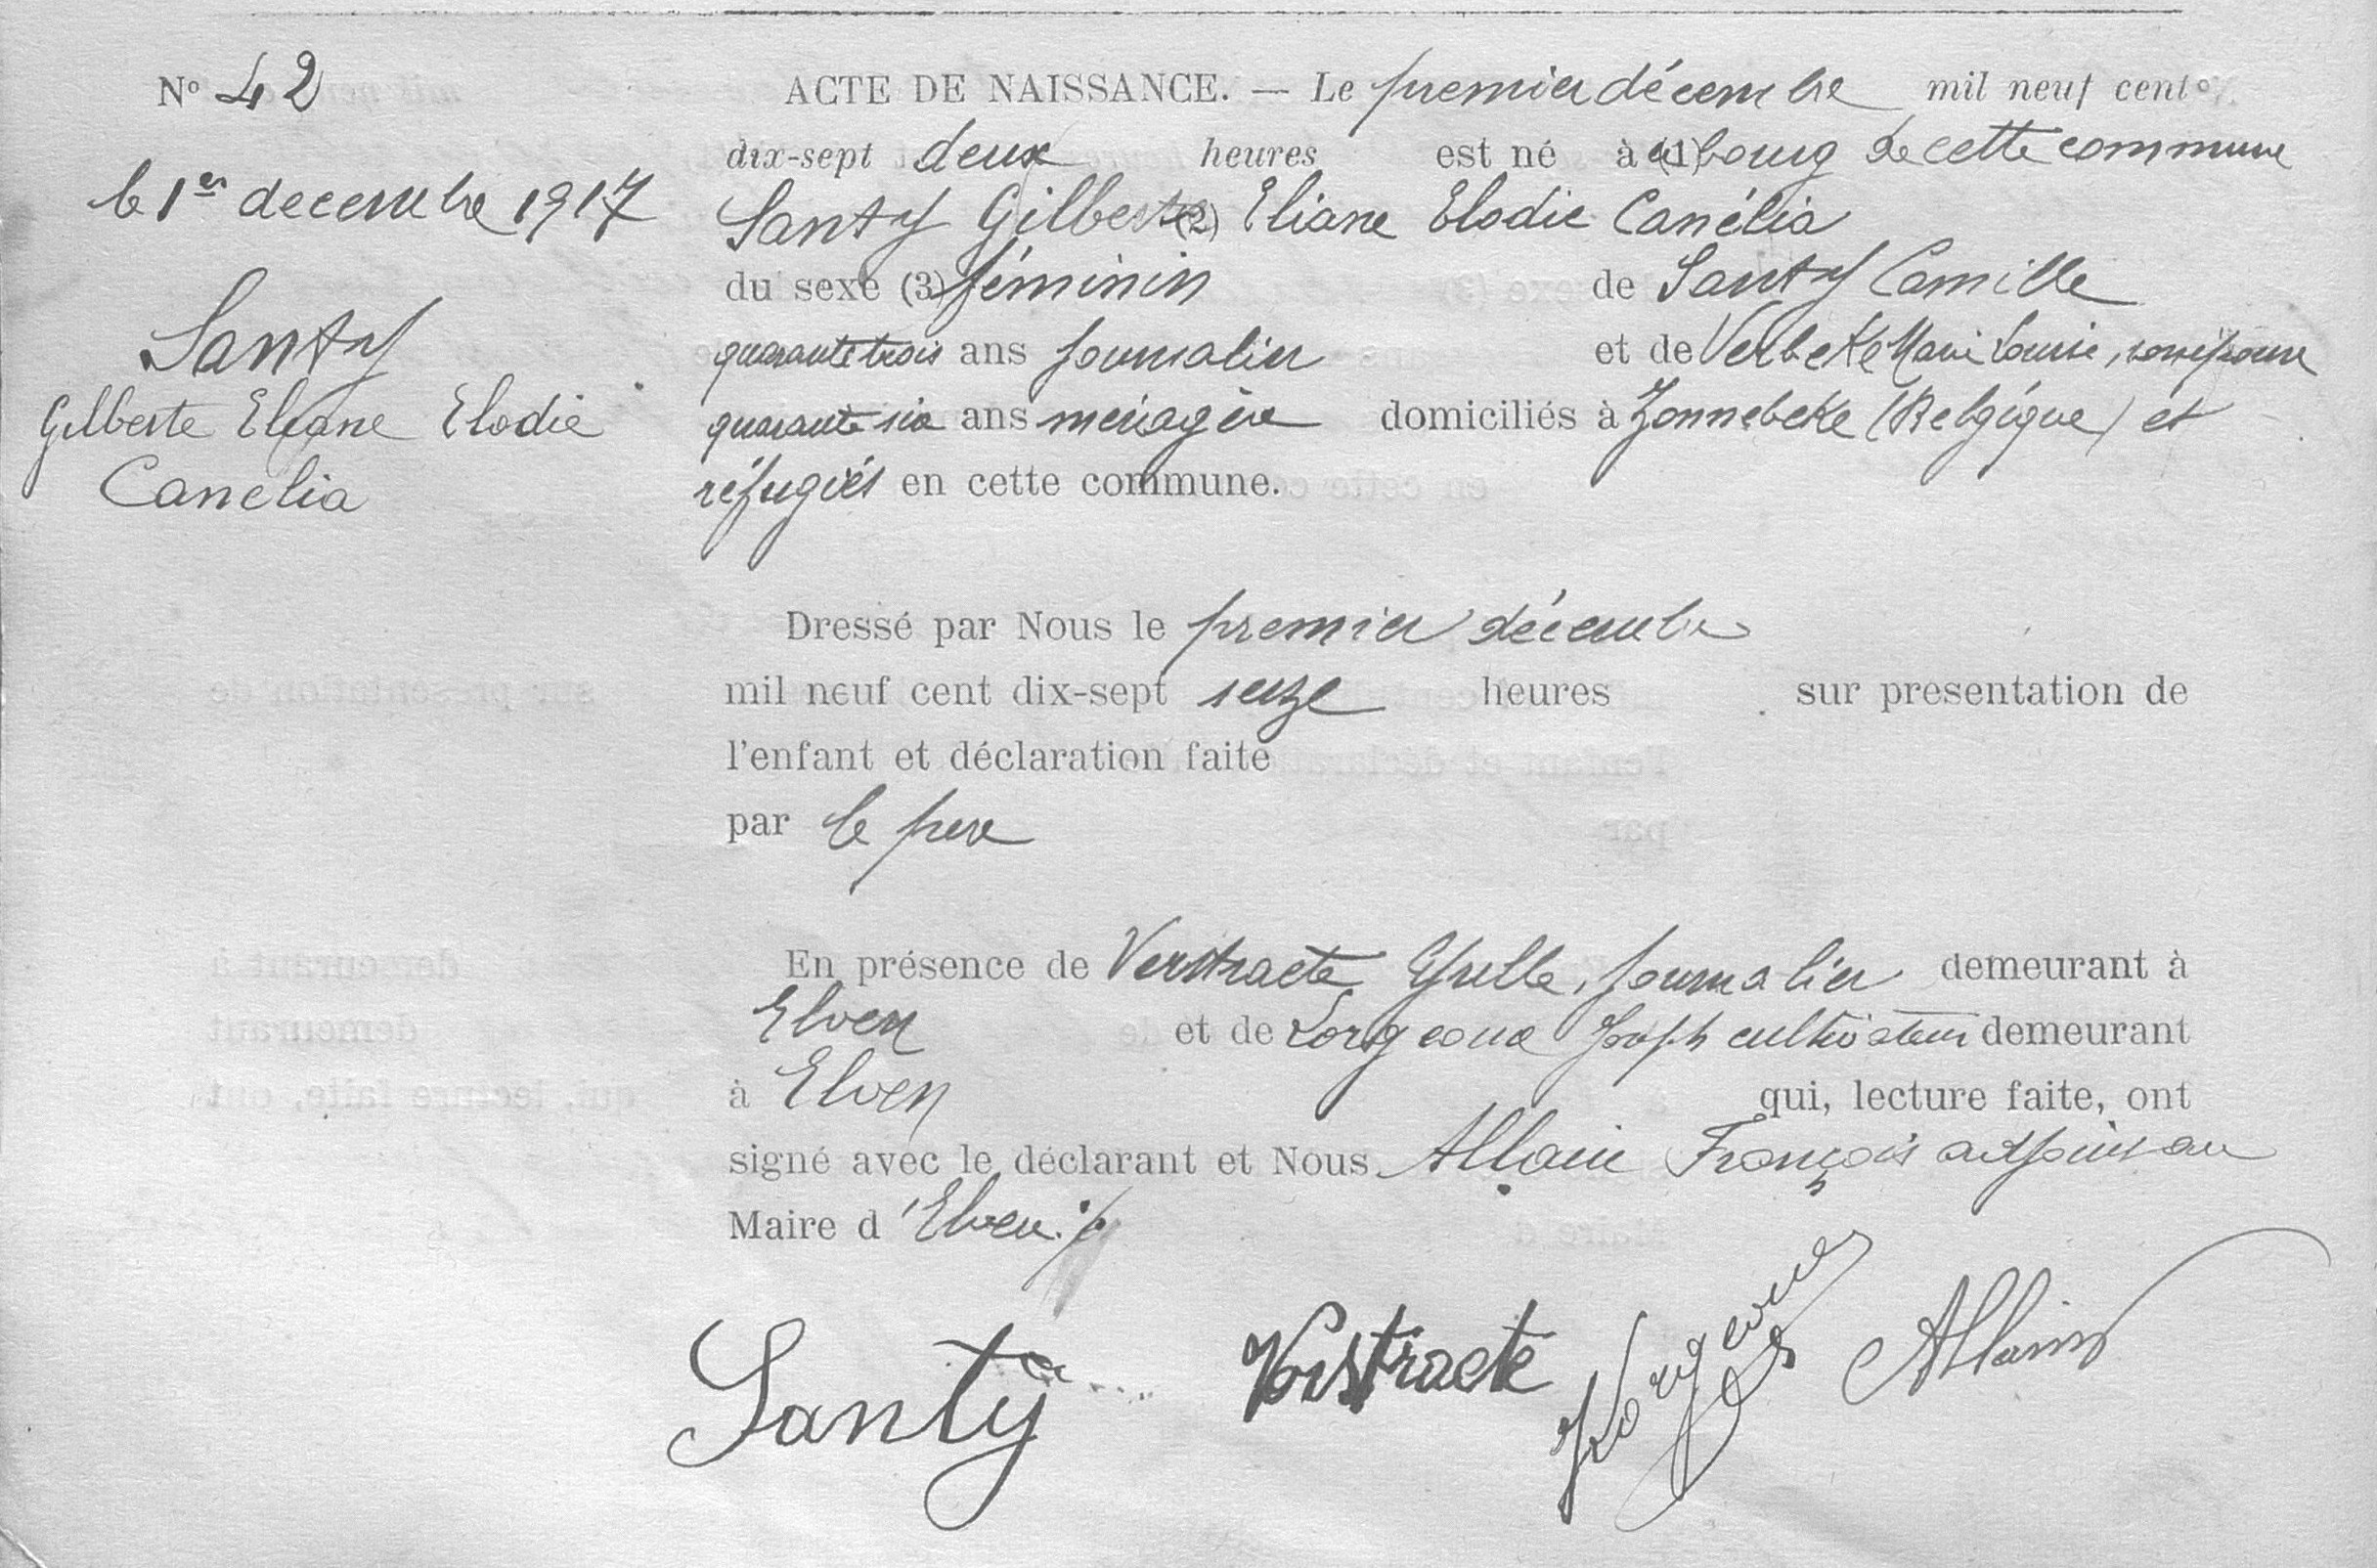 N° 42
le 1er decembre 1917
Santy
Gilberte Eliane Elodie
Canelia
ACTE DE NAISSANCE. — Le premier décembre mil neuf cent
dix-sept deux heures est né à (1) bourg de cette commune
Santy Gilberte (2) Eliane Elodie Canélia
du sexe (3) féminin de Santy Camille
quarante trois ans journalier et de Verbeke Marie Louise, son épouse
quarante six ans ménagère domiciliés à Zonnebeke (Belgique) et
réfugiés en cette commune.
Dressé par Nous le premier décembre
mil neuf cent dix-sept seize heures sur presentation de
l'enfant et déclaration faite
par le père
En présence de Verstraete journalier demeurant à
Elven et de Lorgeoux Joseph cultivateur demeurant
à Elven qui, lecture faite, ont
signé avec le déclarant et Nous Allain François adjoint au
Maire d'Elven ./.
Santy Verstraete Lorgeoux Allain